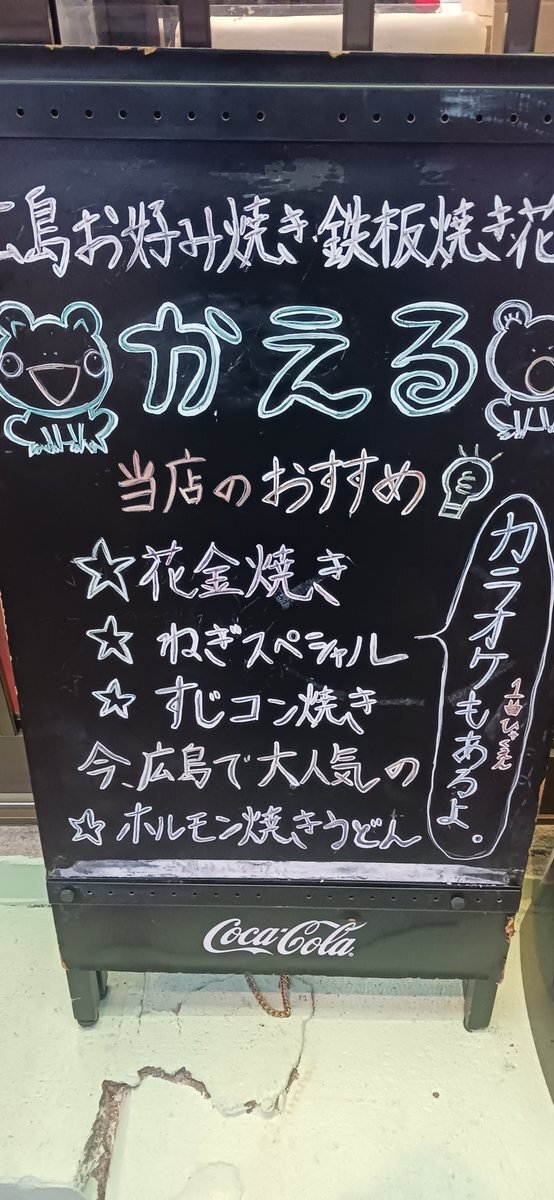 広島お好み焼き・鉄板焼き花
かえる
当店のおすすめ
☆花金焼き
☆ねぎスペシャル
☆すじコン焼き
今、広島で大人気の
☆ホルモン焼きうどん
カラオケもあるよ。
1曲ひゃくえん
Coca-Cola